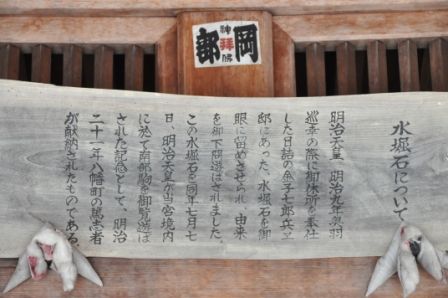 岡部
神拝佛
水堀石について
明治天皇、明治九年奥羽
巡幸の際に御休所を奉仕
した日詰の金子七郎兵エ
邸にあった、水堀石を御
眼に留めさせられ、由来
を御下問遊ばされました。
この水堀石を同年七月七
日、明治天皇が当宮境内
に於て南部駒を御覧遊ば
された記念として、明治
二十一年八幡町の篤志者
が献納されたものである。